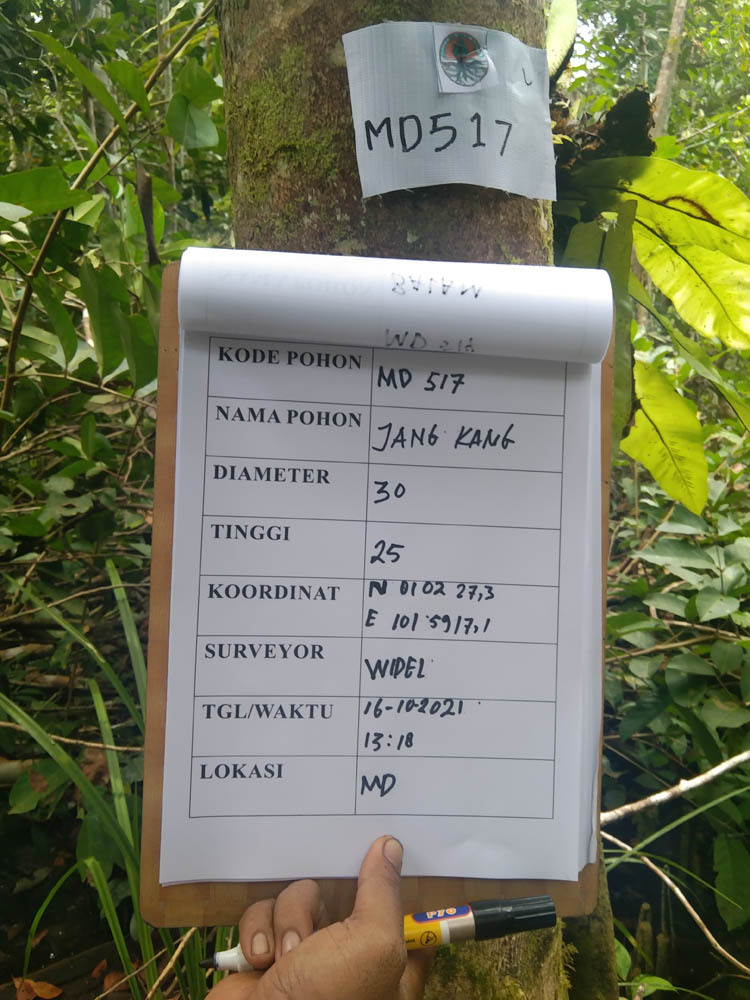 MD517
BALAM
KODE POHON MD 517
NAMA POHON JANG KANG
DIAMETER 30
TINGGI 25
KOORDINAT N 01 02 27,3
E 101 59 17,1
SURVEYOR WIDEL
TGL/WAKTU 16-10-2021
13:18
LOKASI MD